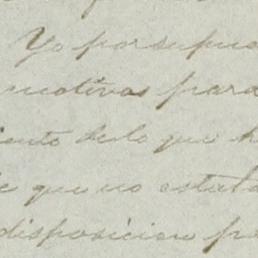 Yo por supues
motivos para
iento de lo que h
e que no estab
disposicion pa